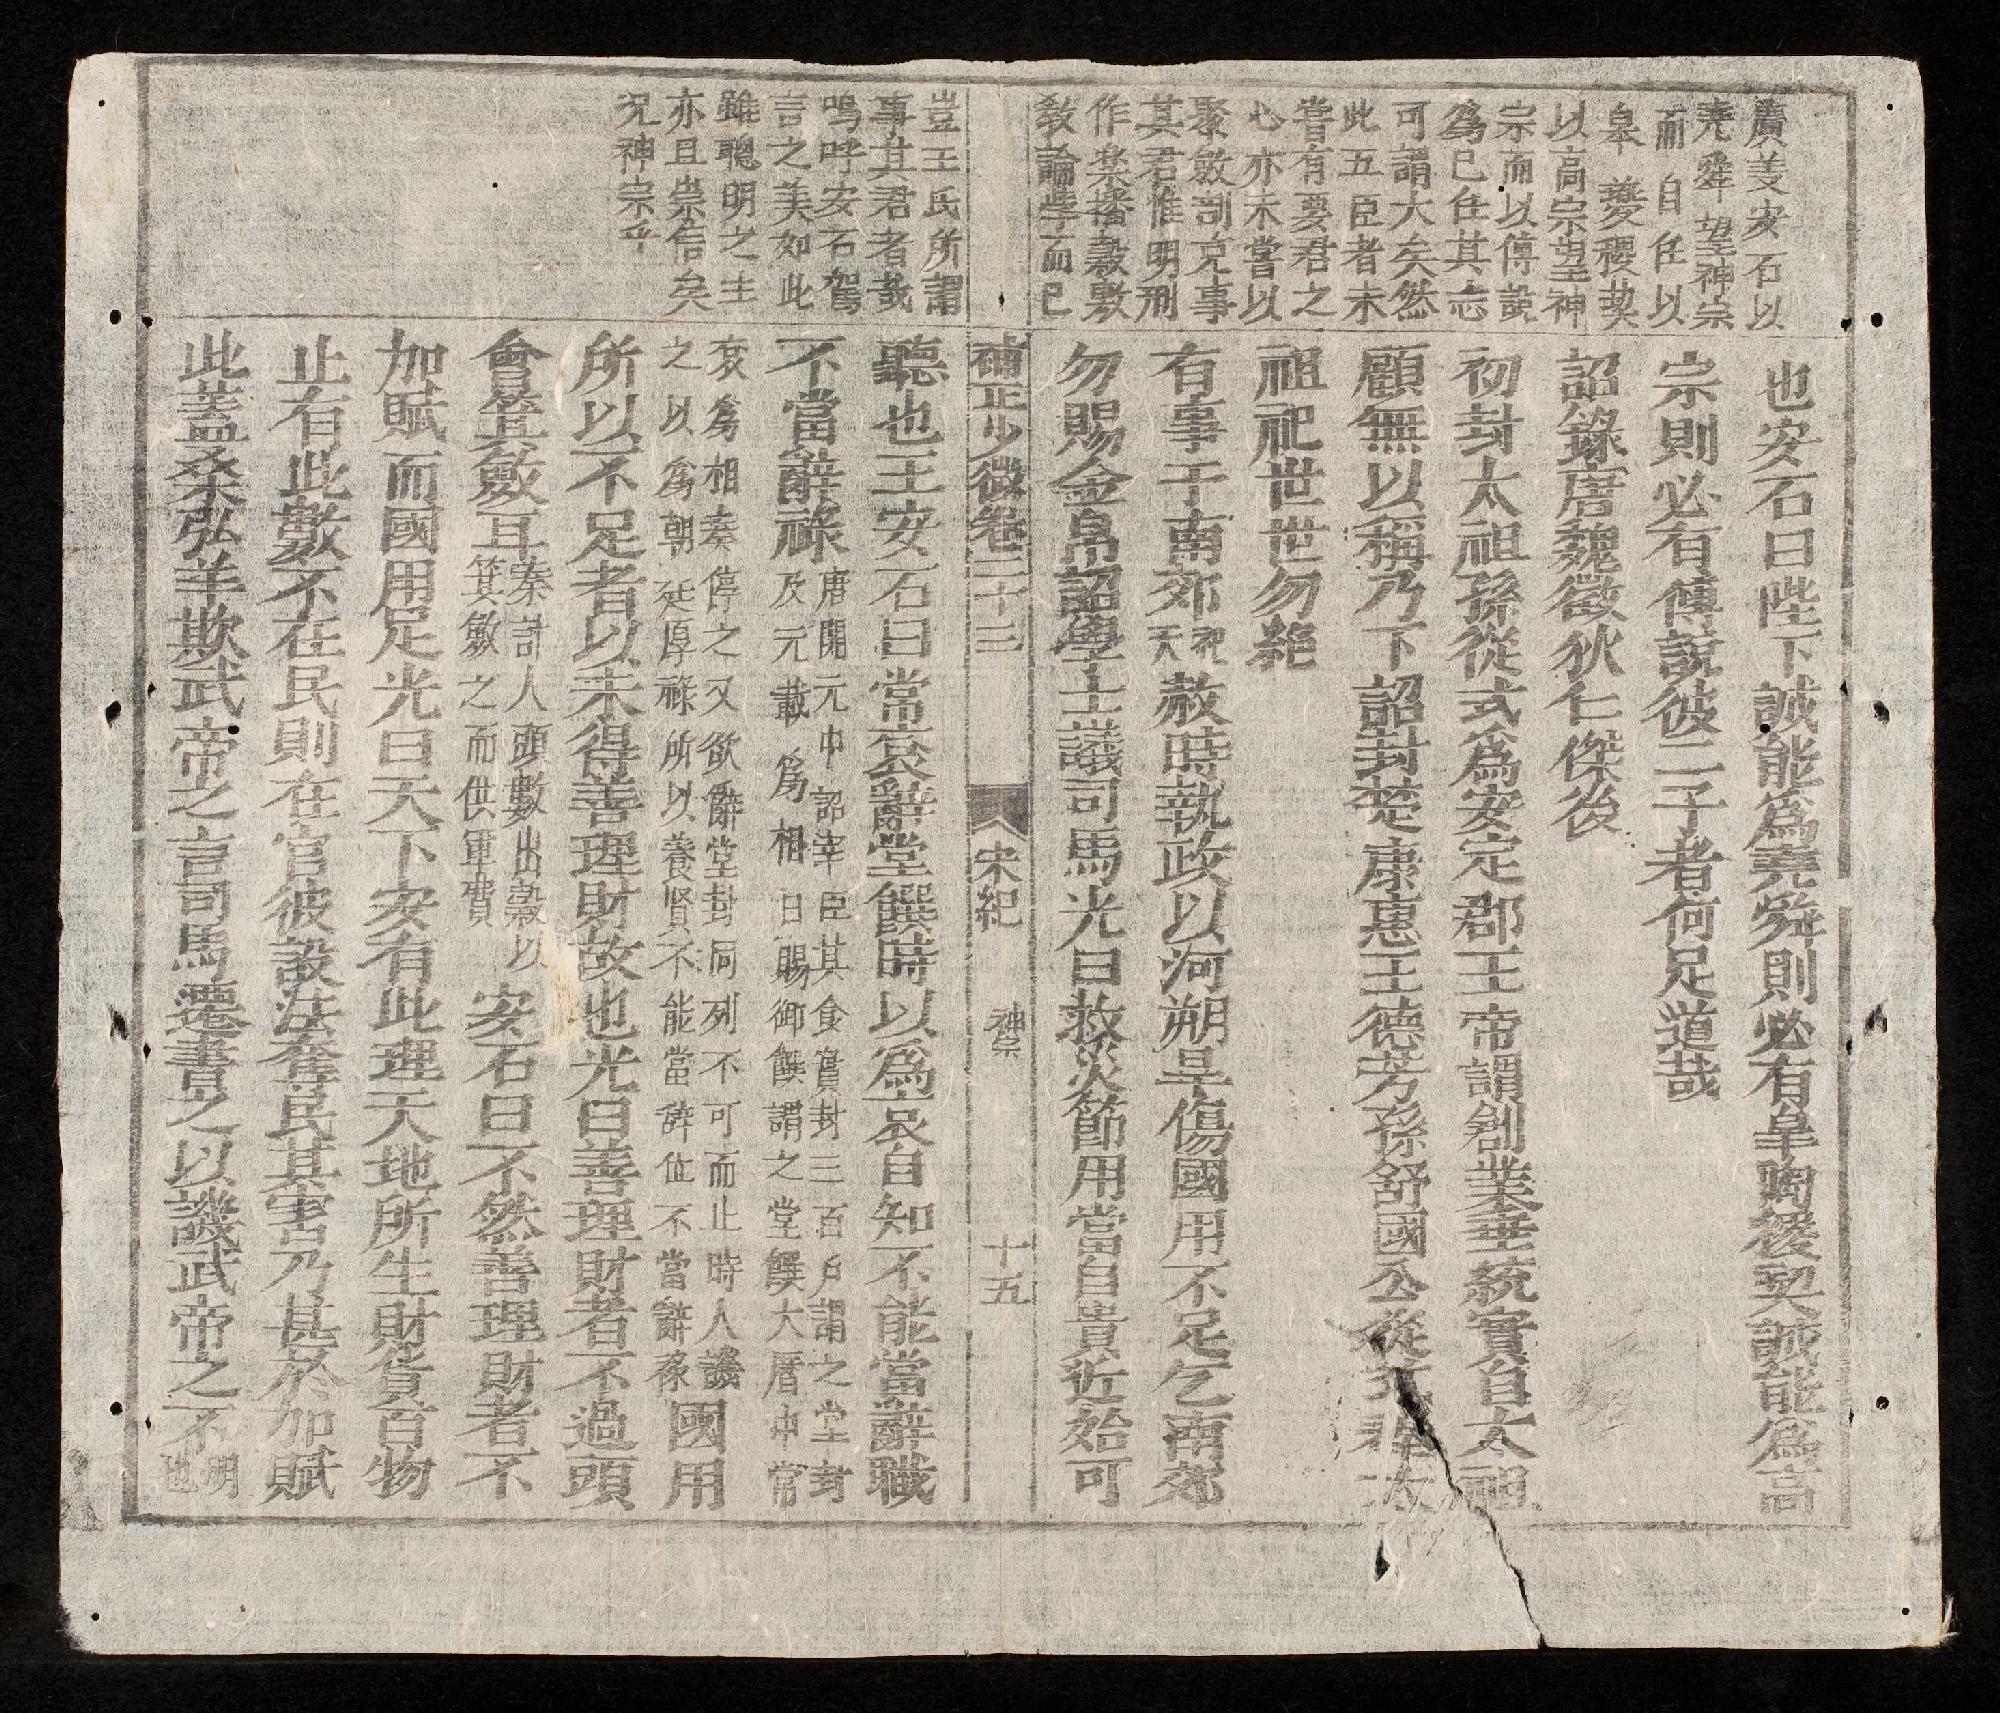 廣義安石以
堯舜望神宗
而自任以
皋夔稷契
以高宗望神
宗而以傅說
爲已任其志
可謂大矣然
此五臣者未
嘗有要君之
心亦未嘗以
聚斂剖克事
其君惟明刑
作樂播穀敷
敎論學而已
豈王氏所謂
事其君者哉
嗚呼安石駕
言之美如此
雖聰明之主
亦且崇信矣
況神宗乎
也安石曰陛下誠能爲堯舜則必有皋陶稷契誠能爲高
宗則必有傅說彼二子者何足道哉
詔錄唐魏徵狄仁傑後
初封太祖孫從式爲安定郡王帝謂創業垂統實自太祖
顧無以稱乃下詔封楚康惠王德芳孫舒國公從式
祖祀世世勿絕
有事于南郊祀天赦時執政以河朔旱傷國用不足乞南郊
勿賜金帛詔學士議司馬光曰救災節用當自貴近始可
補正少微卷三十三 宋紀 神宗 十五
聽也王安石曰常袞辭堂饌時以爲袞自知不能當辭職
不當辭祿唐開元中詔宰臣其食實封三百戶謂之堂封
及元載爲相日賜御饌謂之堂饌大曆中常
袞爲相奏停之又欲辭堂封同列不可而止時人譏
之以爲朝廷厚祿所以養賢不能當辭位不當辭祿國用
所以不足者以未得善理財故也光曰善理財者不過頭
會箕斂耳秦計人頭數出穀以
箕斂之而供軍費安石曰不然善理財者不
加賦而國用足光曰天下安有此理天地所生財貨百物
止有此數不在民則在官彼設法奪民其害乃甚於加賦
此蓋桑弘羊欺武帝之言司馬遷書之以譏武帝之不明
也